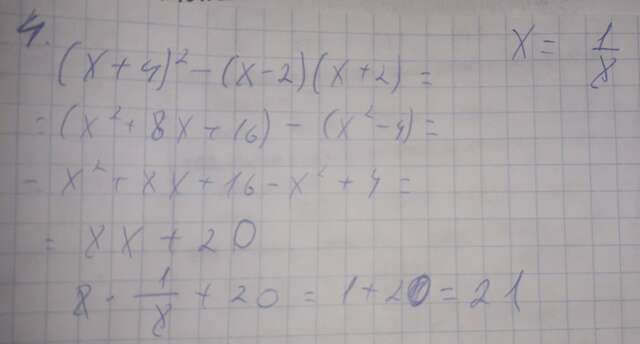 4.
(x+4)² - (x-2)(x+2) =
x = 1/8
= (x² + 8x + 16) - (x² - 4) =
= x² + 8x + 16 - x² + 4 =
= 8x + 20
8 · 1/8 + 20 = 1 + 20 = 21